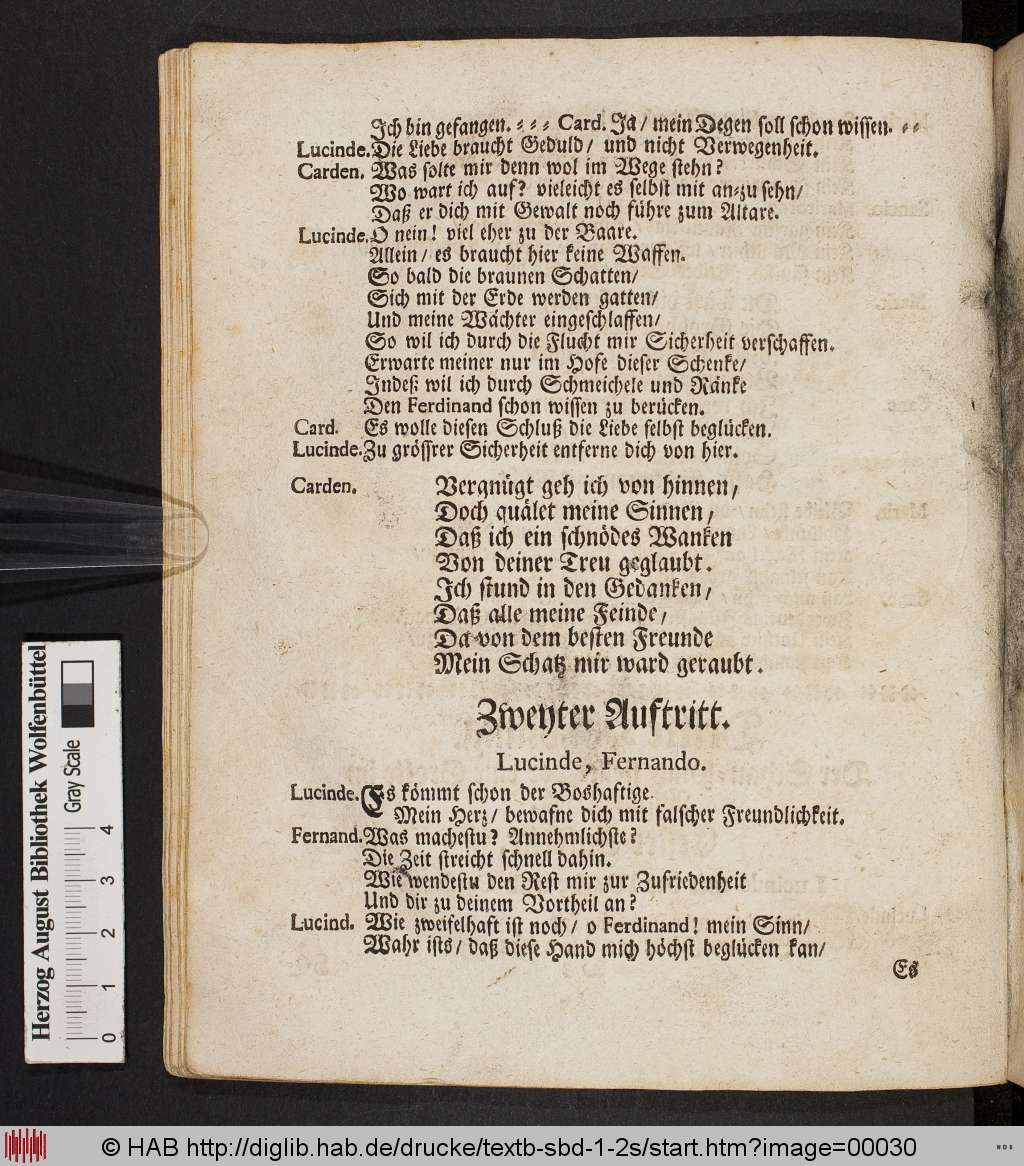 Ich bin gefangen. ⸗ ⸗ ⸗ Card. Ja / mein Degen soll schon wissen. ⸗ ⸗
Lucinde. Die Liebe braucht Geduld / und nicht Verwegenheit.
Carden. Was solte mir denn wol im Wege stehn?
Wo wart ich auf? vieleicht es selbst mit an⸗zu sehn /
Daß er dich mit Gewalt noch führe zum Altare.
Lucinde. O nein! viel eher zu der Baare.
Allein / es braucht hier keine Waffen.
So bald die braunen Schatten /
Sich mit der Erde werden gatten /
Und meine Wächter eingeschlaffen /
So wil ich durch die Flucht mir Sicherheit verschaffen.
Erwarte meiner nur im Hofe dieser Schenke /
Indeß wil ich durch Schmeichele und Ränke
Den Ferdinand schon wissen zu berücken.
Card. Es wolle diesen Schluß die Liebe selbst beglücken.
Lucinde. Zu grössrer Sicherheit entferne dich von hier.
Carden. Vergnügt geh ich von hinnen /
Doch quälet meine Sinnen /
Daß ich ein schnödes Wanken
Von deiner Treu geglaubt.
Ich stund in den Gedanken /
Daß alle meine Feinde /
Da von dem besten Freunde
Mein Schatz mir ward geraubt.
Zweyter Auftritt.
Lucinde, Fernando.
Lucinde. Es kömmt schon der Boshaftige.
Mein Herz / bewafne dich mit falscher Freundlichkeit.
Fernand. Was machestu? Annehmlichste?
Die Zeit streicht schnell dahin.
Wie wendestu den Rest mir zur Zufriedenheit
Und dir zu deinem Vortheil an?
Lucind. Wie zweifelhaft ist noch / o Ferdinand! mein Sinn /
Wahr ists / daß diese Hand mich höchst beglücken kan /
Es
Herzog August Bibliothek Wolfenbüttel
Gray Scale
0 1 2 3 4
© HAB http://diglib.hab.de/drucke/textb-sbd-1-2s/start.htm?image=00030